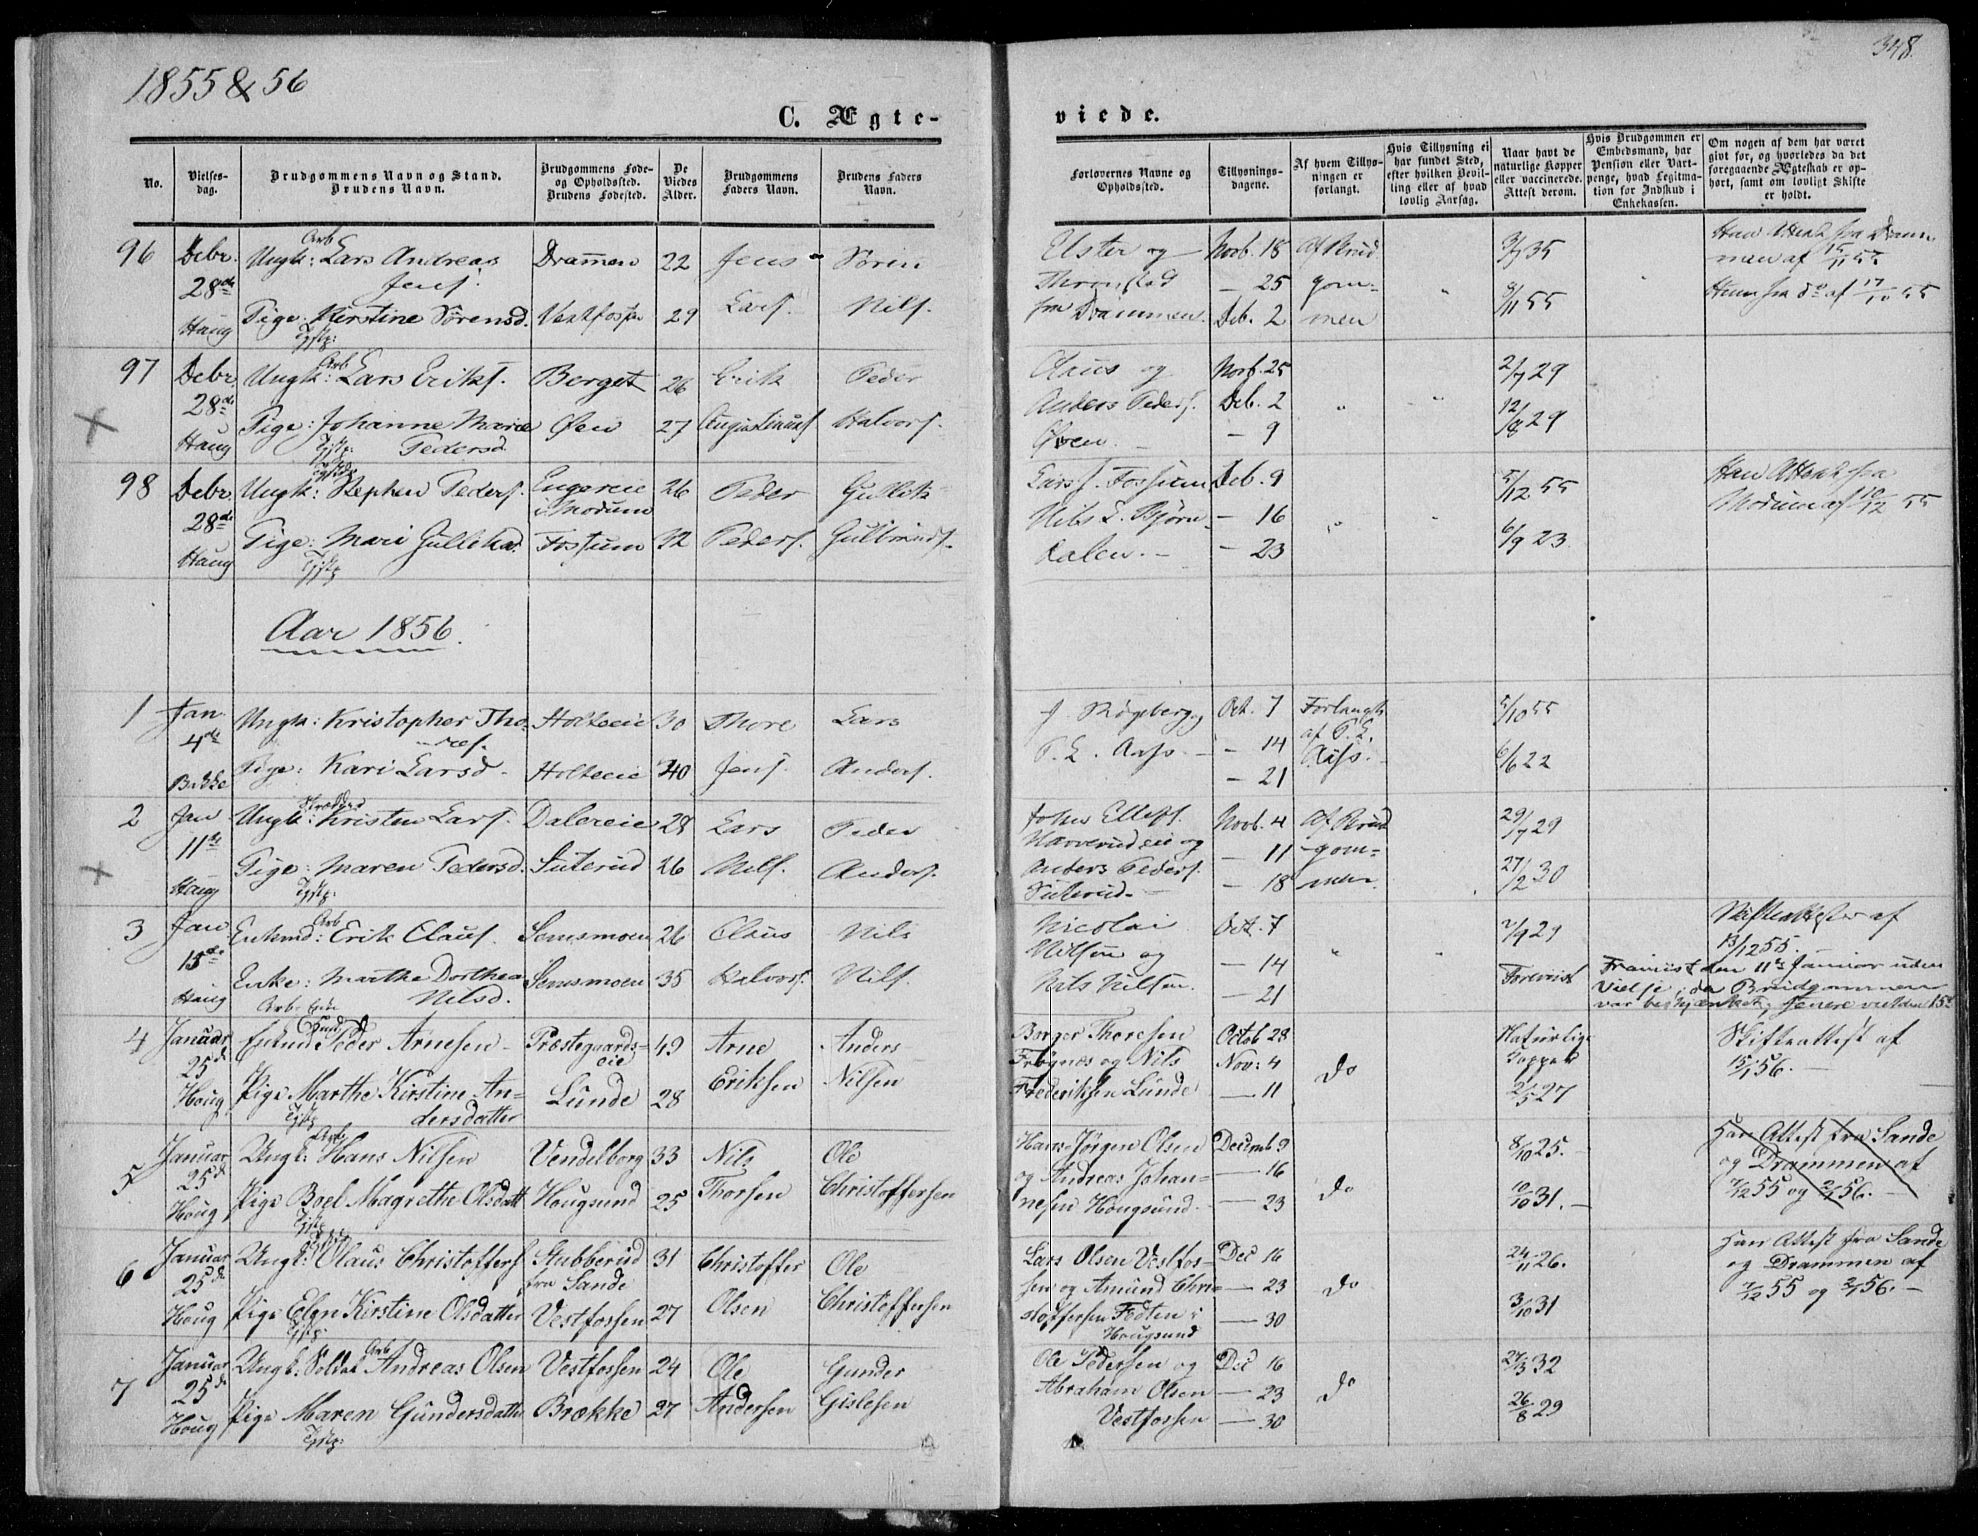 1855 & 56
348.
C. Ægte-
viede.
No.
Vielses-
dag.
Brudgommens Navn og Stand.
Brudens Navn.
Brudgommens Føde-
og Opholdssted.
Brudens Fødested.
De
Viedes
Alder.
Brudgommens
Faders Navn.
Brudens Faders
Navn.
Forlovernes Navne og
Opholdssted.
Tillysnings-
dagene.
Af hvem Tillys-
ningen er
forlangt.
Hvis Tillysning ei
har fundet Sted,
efter hvilken Bevil-
ling eller af hvad
lovlig Aarsag.
Naar havt de
naturlige Kopper
eller vaccinerede.
Attest derom.
Hvis Brudgommen er
Embedsmand, har
Pension eller Vart-
penge, hvad Legitima-
tion for Indskud i
Enkekassen.
Om nogen af dem har været
givt før, og hvorledes da det
foregaaende Ægteskab er op-
hørt, samt om lovligt Skifte
er holdt.
96 Debr. Ungk: Arb Lars Andreas Drammen 22 Jens Søren
28de Jens.
Haug Pige: Kirstine Sørensd. Vestfossen 29 Lars. Nils.
Elster og Novb. 18 Af Brud 3/7 35 Han Attest fra Dram
Thomstad — 25 gom= men af 15/11 55
fra Drammen. Deb. 2 men 8/11 55 Hun fra do af 17/10 55
97 Debr. Ungk: Arb Lars Eriks. Berget 26 Erik Peder
28de
Haug Pige: Johanne Marie Øen 27 Augustinius. Halvors.
Pedersd.
Claus og Novb. 25 2/7 29
Anders Peders. Deb. 2 12/8 29
Øen. — 9
98 Debr. Ungk: Stephen Peders. Engereie 26 Peder Gullik
28de i Modum
Haug Pige: Mari Gulliksd. Fossum 32 Peders. Gulbrands.
Lars . Fossum Deb. 9 5/12 55 Han Attest fra
Nils . Bjørn — 16 Modum af 10/12 55
dalen. — 23 6/9 23.
Aar 1856.
1 Jan. Ungk: Kristopher Tho- Holteeie 30 Thore Lars
4de res.
Bakke Pige: Kari Larsd. Holteeie 40 Jens. Anders.
J. Røgeberg Oct. 7 Forlangt 5/10 55
P. L. Aass. — 14 af P. L.
— 21 Aass. 6/6 22
2 Jan Ungk: Kristen Lars. Dalereie 28 Lars Peder
11te
Haug Pige: Maren Pedersd. Suterud 26 Nils. Anders.
John Ellefs. Novb. 4 Af Brud 29/7 29
Harverudeie og — 11 gom=
Anders Peders. — 18 men. 27/2 30
Suterud.
3 Jan. Enkmd: Arb Erik Claus. Semsmoen 26 Claus Nils
15de
Haug Enke: Marthe Dorthea Semsmoen 35 Halvors. Nils.
Nilsd.
Nicolai Oct. 7 2/9 29 Skifteattester af
Nilsen og — 14 13/12 55.
Nils Nilsen. — 21 Foreviist Framiist den 11te Januar uden
Vielse, da Brudgommen
var beskjænket; senere viet den 15de
4 Januar Enkmd Peder Arnesen Præstegaards= 49 Arne Anders
25de eie
Houg Pige Marthe Kirstine An= Lunde 28 Eriksen Nilsen
dersdatter
Borger Thoresen Octob 28 Naturlige Skifteattest af
Frøgnes og Nils Nov: 4 Do Kopper 15/1 56.
Frederiksen Lunde — 11 2/5 27
5 Januar Ungk: Arb Hans Nilsen Vendelborg 33 Nils Ole
25de
Houg Pige Boel Magrethe Olsdatt Hougsund 25 Thorsen Christoffersen
Hans Jørgen Olsen Decemb 9 8/10 25. Han Attest fra Sande
og Andreas Johan= — 16 Do og Drammen af
nesen Hougsund. — 23 10/10 31. 7/12 55 og 2/1 56.
6 Januar Ungk: Olaus Christoffers Stubberud 31 Christoffer Ole
25de fra Sande
Houg Pige Elen Kirstine Olsdatter Vestfossen 27 Olsen Christoffersen
Lars Olsen Vestfos= Dec 16 24/11 26. Han Attest fra Sande
sen og Amund Chri= — 23 Do og Drammen af
stoffersen Fedten i — 30 3/10 31 7/12 55 og 2/1 56.
Hougsund
7 Januar Ungk: Soldat Arb Andreas Olsen Vestfossen 24 Ole Gunder
25de
Houg Pige Maren Gundersdatter Brække 27 Andersen Gislesen
Ole Pedersen og Dec 16 27/3 32
Abraham Olsen — 23 Do
Vestfossen — 30 26/8 29